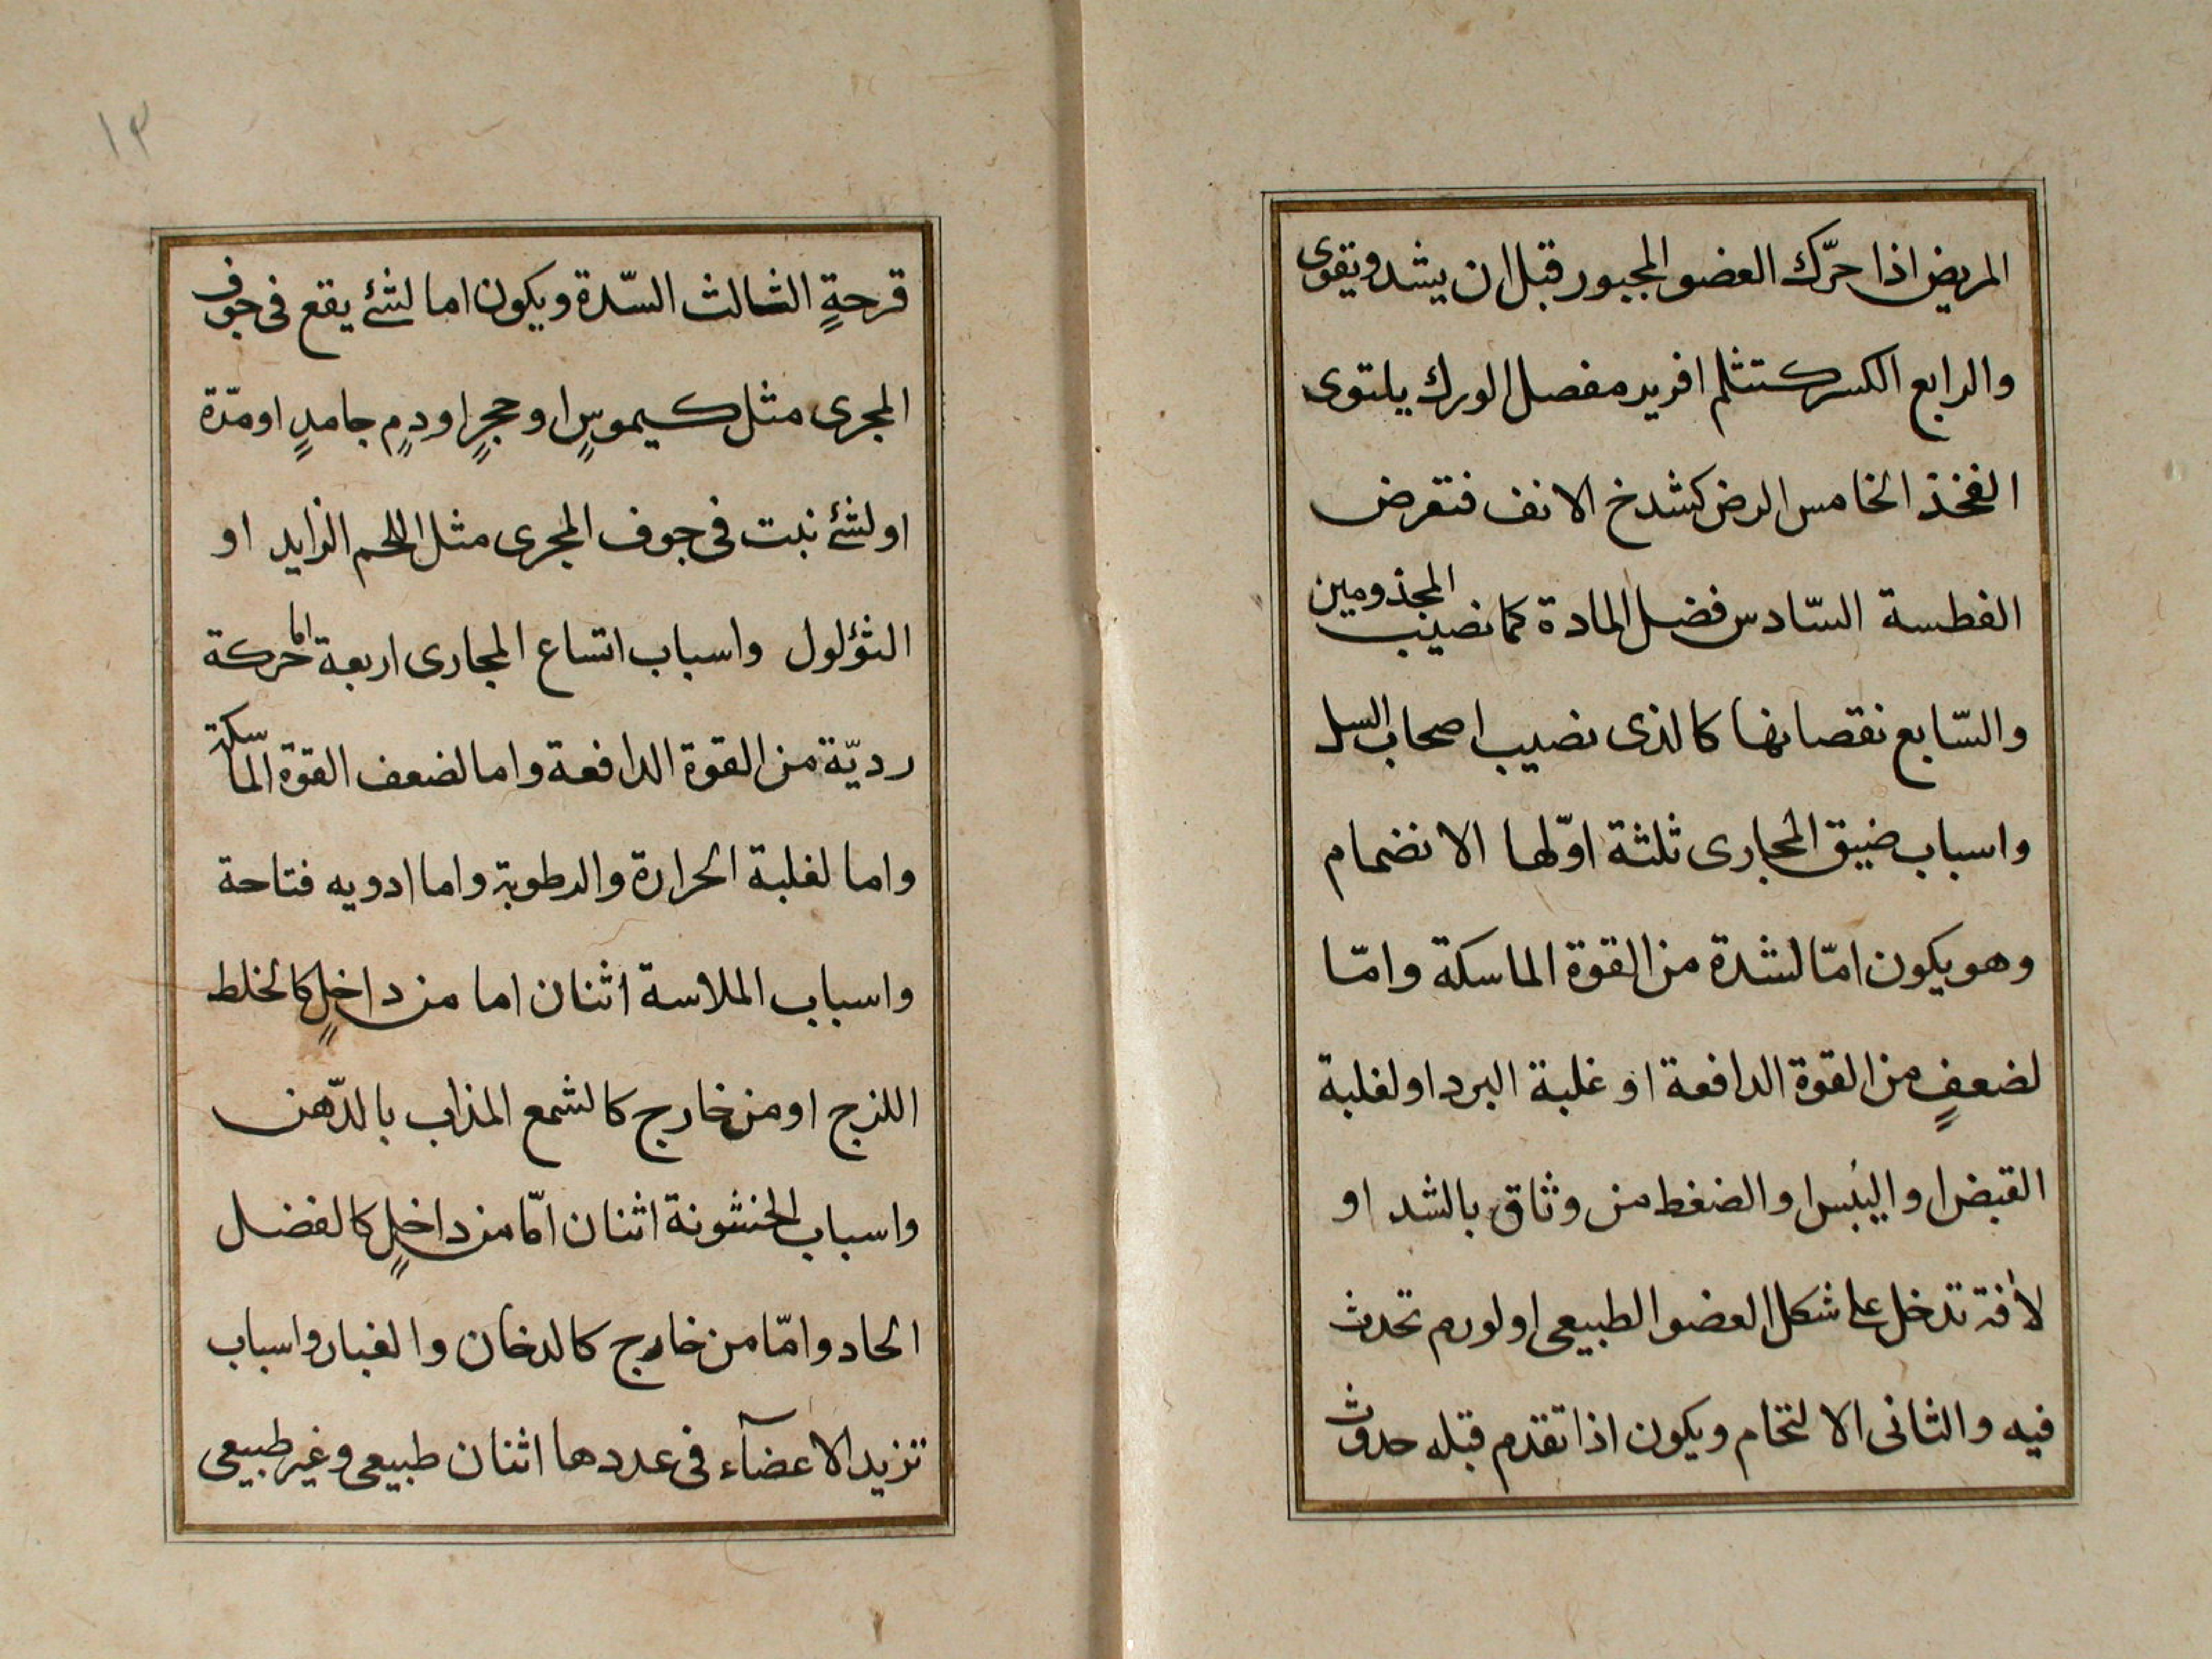 المريض اذا حرّك العضو المجبور قبل ان يشد ويقوى
والرابع الكسر كتثلم افريز مفصل الورك يلتوى
الفخذ الخامس الرض كشدخ الانف فتعرض
الفطسة السّادس فضل المادة كما نصيب المجذومين
والسّابع نقصانها كالذى نصيب اصحاب السل
واسباب ضيق المجارى ثلثة اوّلها الانضمام
وهو يكون امّا لشدة من القوة الماسكة وامّا
لضعفٍ من القوة الدافعة او غلبة البرد او لغلبة
القبض او اليُبس او الضغط من وثاق بالشد او
لأفة تدخل على شكل العضو الطبيعى او لورم تحدث
فيه والثانى الالتحام ويكون اذا تقدم قبله حدوث
١٣
قرحةٍ الثالث السّدة ويكون اما لشئ يقع فى جوف
المجرى مثل كيموسٍ او حجرٍ او دمٍ جامدٍ او مدّة
او لشئ نبت فى جوف المجرى مثل اللحم الزايد او
الثؤلول واسباب اتساع المجارى اربعة اما حركة
رديّة من القوة الدافعة واما لضعف القوة الماسكة
واما لغلبة الحرارة والرطوبة واما ادويه فتاحة
واسباب الملاسة اثنان اما من داخلٍ كالخلط
اللزج او من خارج كالشمع المذاب بالدّهن
واسباب الخشونة اثنان امّا من داخلٍ كالفضل
الحاد وامّا من خارج كالدخان والغبار واسباب
تزيد الاعضآء فى عددها اثنان طبيعى وغير طبيعى